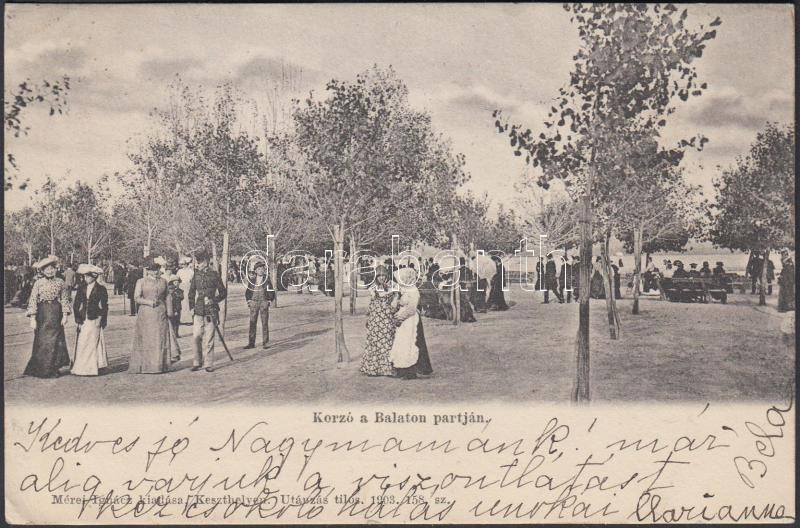 darabanth.com
Korzó a Balaton partján.
Kedves jó Nagymamánk! már
alig várjuk a viszontlátást
Mérei Ignácz kiadása, Keszthelyen. Utánzás tilos. 1903. 158. sz.
kézcsókoló hálás unokái Marianne
Béla